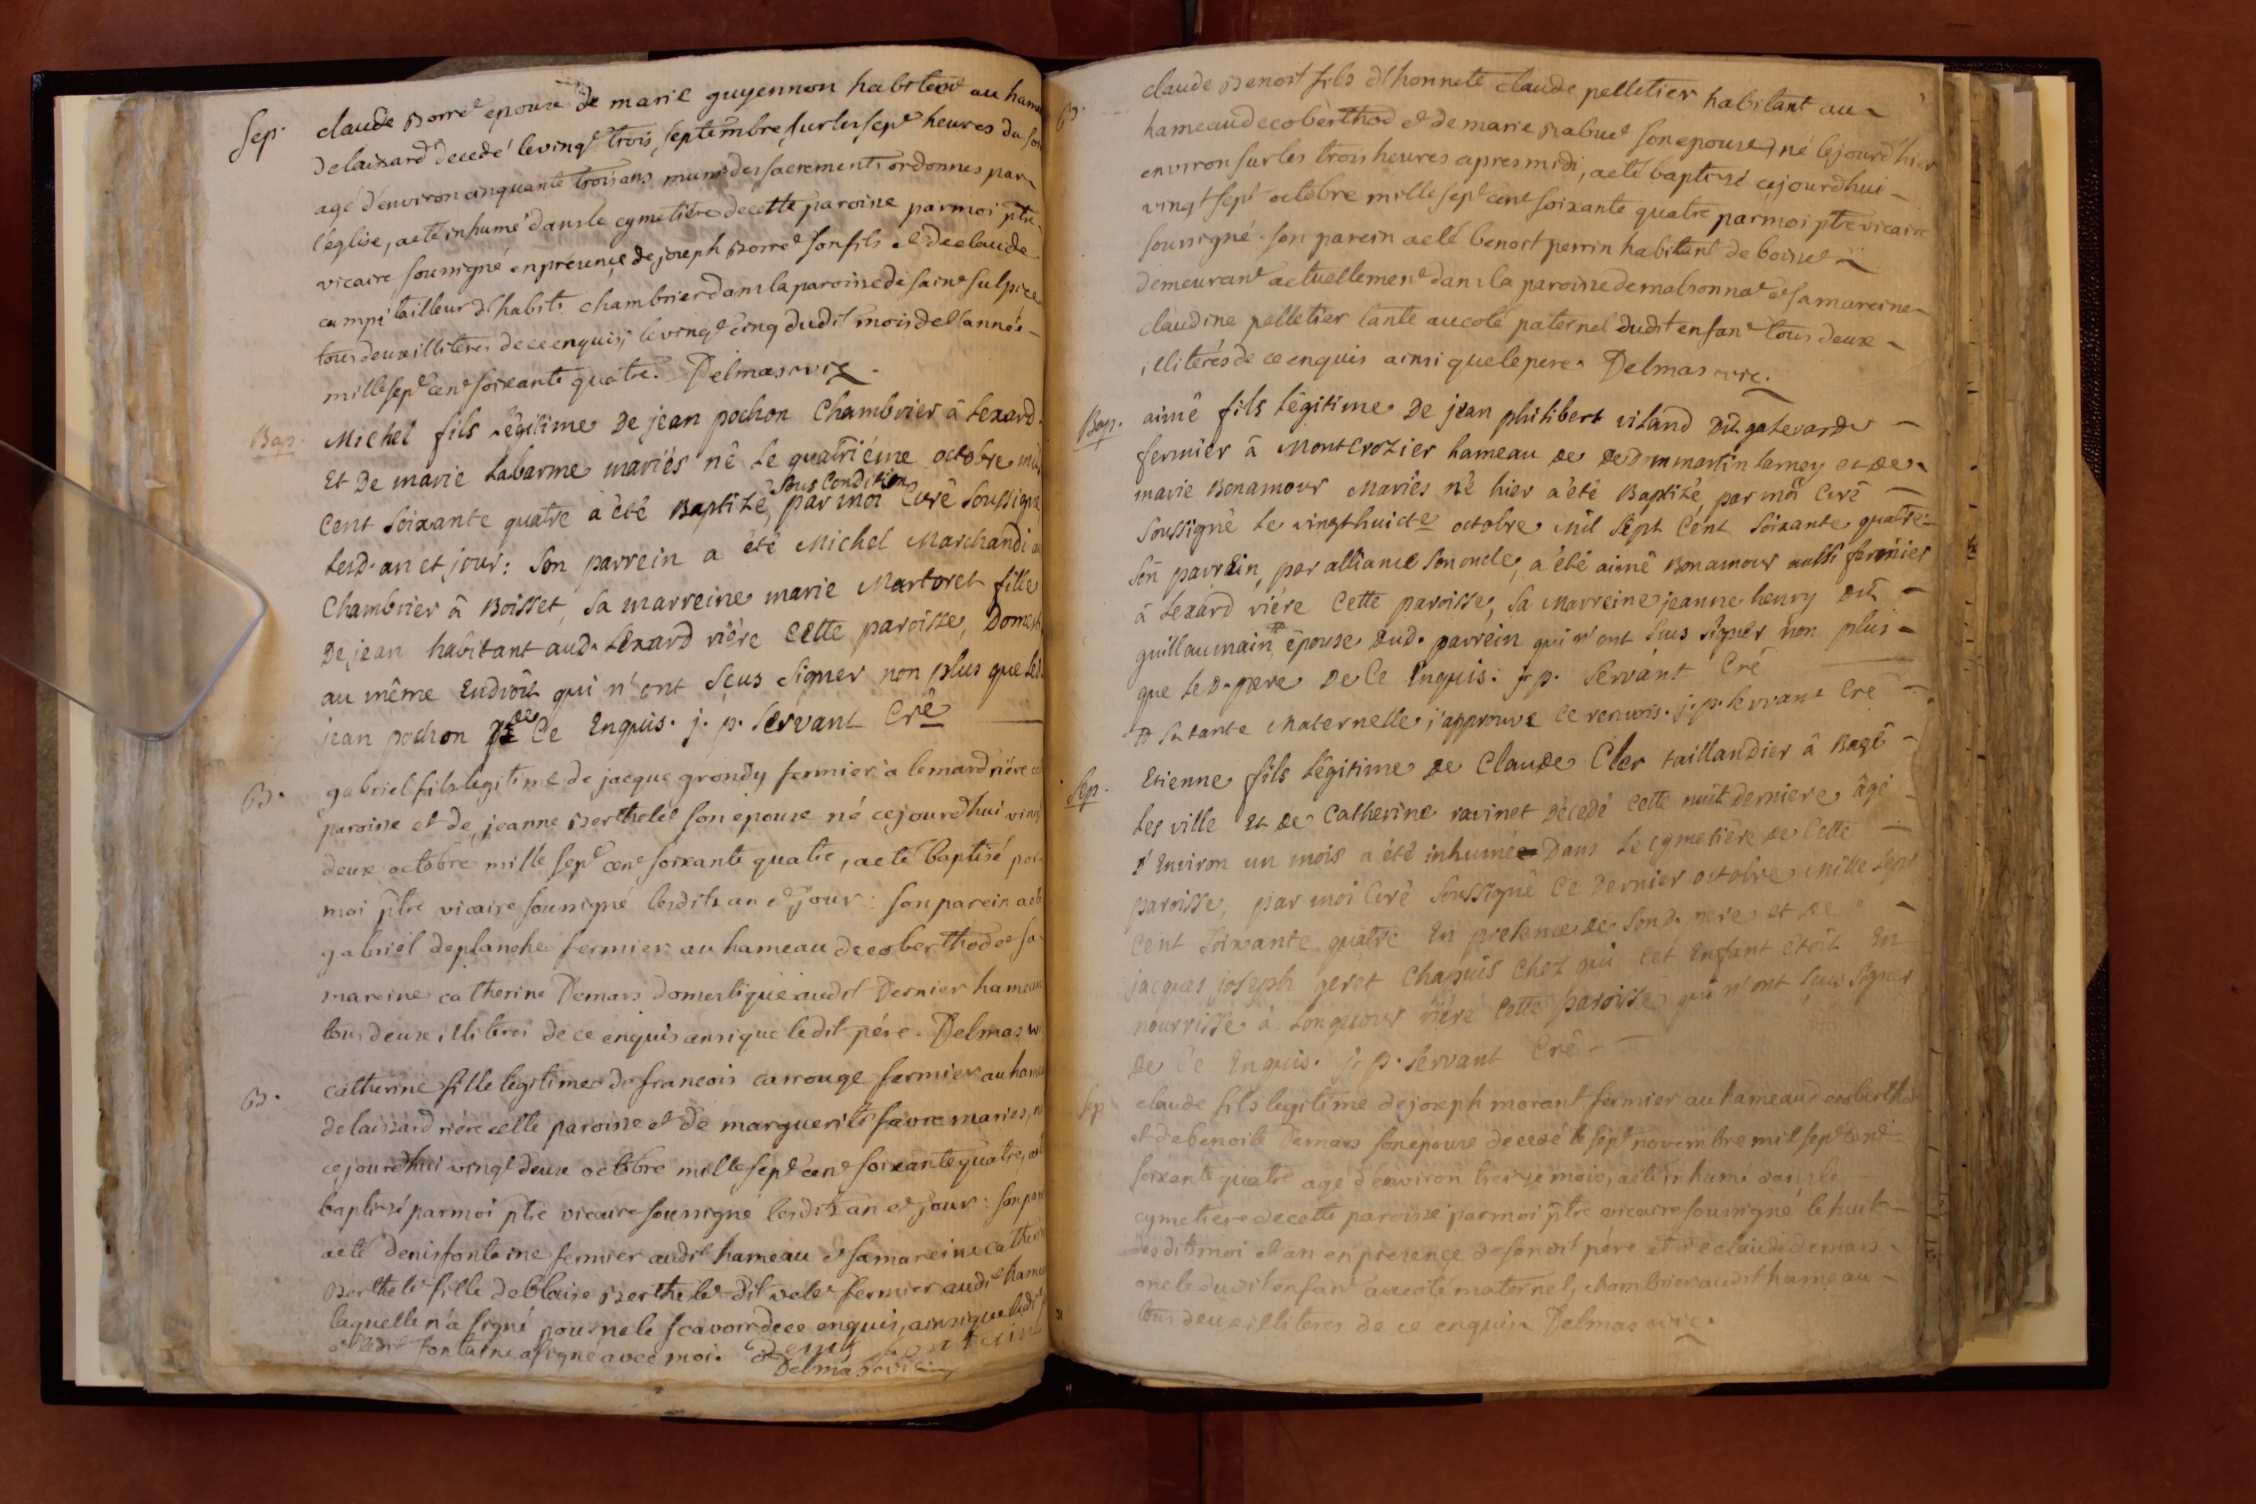 Sep. claude Borre epouse de marie guyennon habitant au ham
delaixard decedé le vingt trois septembre sur les sept heures du soir
agé d'environ cinquante trois ans muni des sacrements ordonnes par
l'eglise, a eté inhumé dans le cymetiére de cette paroisse par moi ptre
vicaire soussigné en presence de joseph Borre son fils et de claude
tailleur d'habits chambrier dans la paroisse de saint sulpice
tous deux illiteres de ce enquis, le vingt cinq dudit mois de l'année
mille sept cent soixante quatre. Delmas vic.
Bap. Michel fils Légitime De jean pochon Chambrier â Lexard
Et De marie Labarme mariés né Le quatriéme octobre mil
Sous Condition
Cent Soixante quatre a été Baptizé, par moi Curé Soussigné
Lesd. an et jour: Son parrein a été Michel Marchand
Chambrier â Boisset, Sa marreine marie Martoret fille
De jean habitant aud. Lexard riére Cette paroisse, Domest
au même Endroit qui n'ont Sçus Signer non plus que Led.
jean pochon De Ce Enquis. j. p. Servant Cré
B. gabriel fils legitime de jacque grondy fermier a lemard riére
paroisse et de jeanne Berthelet son epouse né cejourdhui vingt
deux octobre mille sept cent soixante quatre, a eté baptisé par
moi ptre vicaire soussigné lesdits an et jour: son parein a eté
gabriel deplanche fermier au hameau de coberthod et sa
mareine catherine Demars domestique audit dernier hameau
tous deux illiteres de ce enquis ainsi que ledit pére. Delmas vi
B. catherine fille legitime de francois carrouge fermier au ham
de laissard riére cette paroisse et de marguerite favre maries, n
cejourdhui vingt deux octobre mille sept cent soixante quatre, a eté
baptisé par moi ptre vicaire soussigné lesdits an et jour: son par
a eté denis fontaine fermier audit hameau et sa mareine catheri
Berthelet fille de blaise Berthelet dit velet fermier audit hame
laquelle n'a signé pour ne le scavoir de ce enquis, ainsi que ledit
et ledit fontaine a signé avec moi. Denis fontaine
Delmas vic
B. claude Benoit fils d'honnete claude pelletier habitant au
hameau de coberthod et de marie Rabuet son epouse, né le jour d'hier
environ sur les trois heures apres midi, a eté baptisé cejourdhui
vingt sept octobre mille sept cent soixante quatre par moi ptre vicaire
soussigné. son parein a eté benoit perrin habitant de boisset
demeurant actuellement dans la paroisse de malsonnat et sa mareine
claudine pelletier tante au coté paternel dudit enfant tous deux
illiterés de ce enquis ainsi que le pere. Delmas vic.
Bap. aimé fils Légitime De jean philibert vitand Dit galevard
fermier â Montcrozier hameau de Dommartin larney et de
marie Bonamour Mariés né hier a été Baptizé, par moi Curé
Soussigné Le vingthuict octobre Mil Sept Cent Soixante quatre:
Son parrein, par alliance Son oncle, a été aimé Bonamour aussi fermier
â Lexard riére Cette paroisse, Sa Marreine jeanne henry Dit
guillaumain # épouse Dud. parrein qui n'ont Sus Signer non plus
que Led. pere De Ce Enquis: j. p. Servant Cré
# Sa tante Maternelle; j'approuve Ce renvois. j. p. Servant Cré
Sep. Etienne fils Légitime De Claude Cler taillandier â Bagé
Les ville Et De Catherine ravinet Décedé Cette nuit derniere âgé
d'Environ un mois a été inhumé Dans Le cymetiére de Cette
paroisse, par moi Curé Soussigné Ce Dernier octobre Mille Sept
Cent Soixante quatre En presence de Sond. pere et de
jacques joseph Chapuis Chez qui cet Enfant étoit En
nourrisse à Longecour riére Cette paroisse qui n'ont Sus Signer
De Ce Enquis. j. p. Servant Cré
Sep. claude fils legitime de joseph morant fermier au hameau de coberthod
et de benoite Demars son epouse decedé le sept novembre mil sept cent
soixante quatre agé d'environ treize mois, a eté inhumé dans le
cymetiére de cette paroisse par moi ptre vicaire soussigné le huit
desdits moi et an en presence de son dit pére et de claude demars
oncle dudit enfant au coté maternel, chambrier audit hameau
tous deux illiteres de ce enquis Delmas vic.